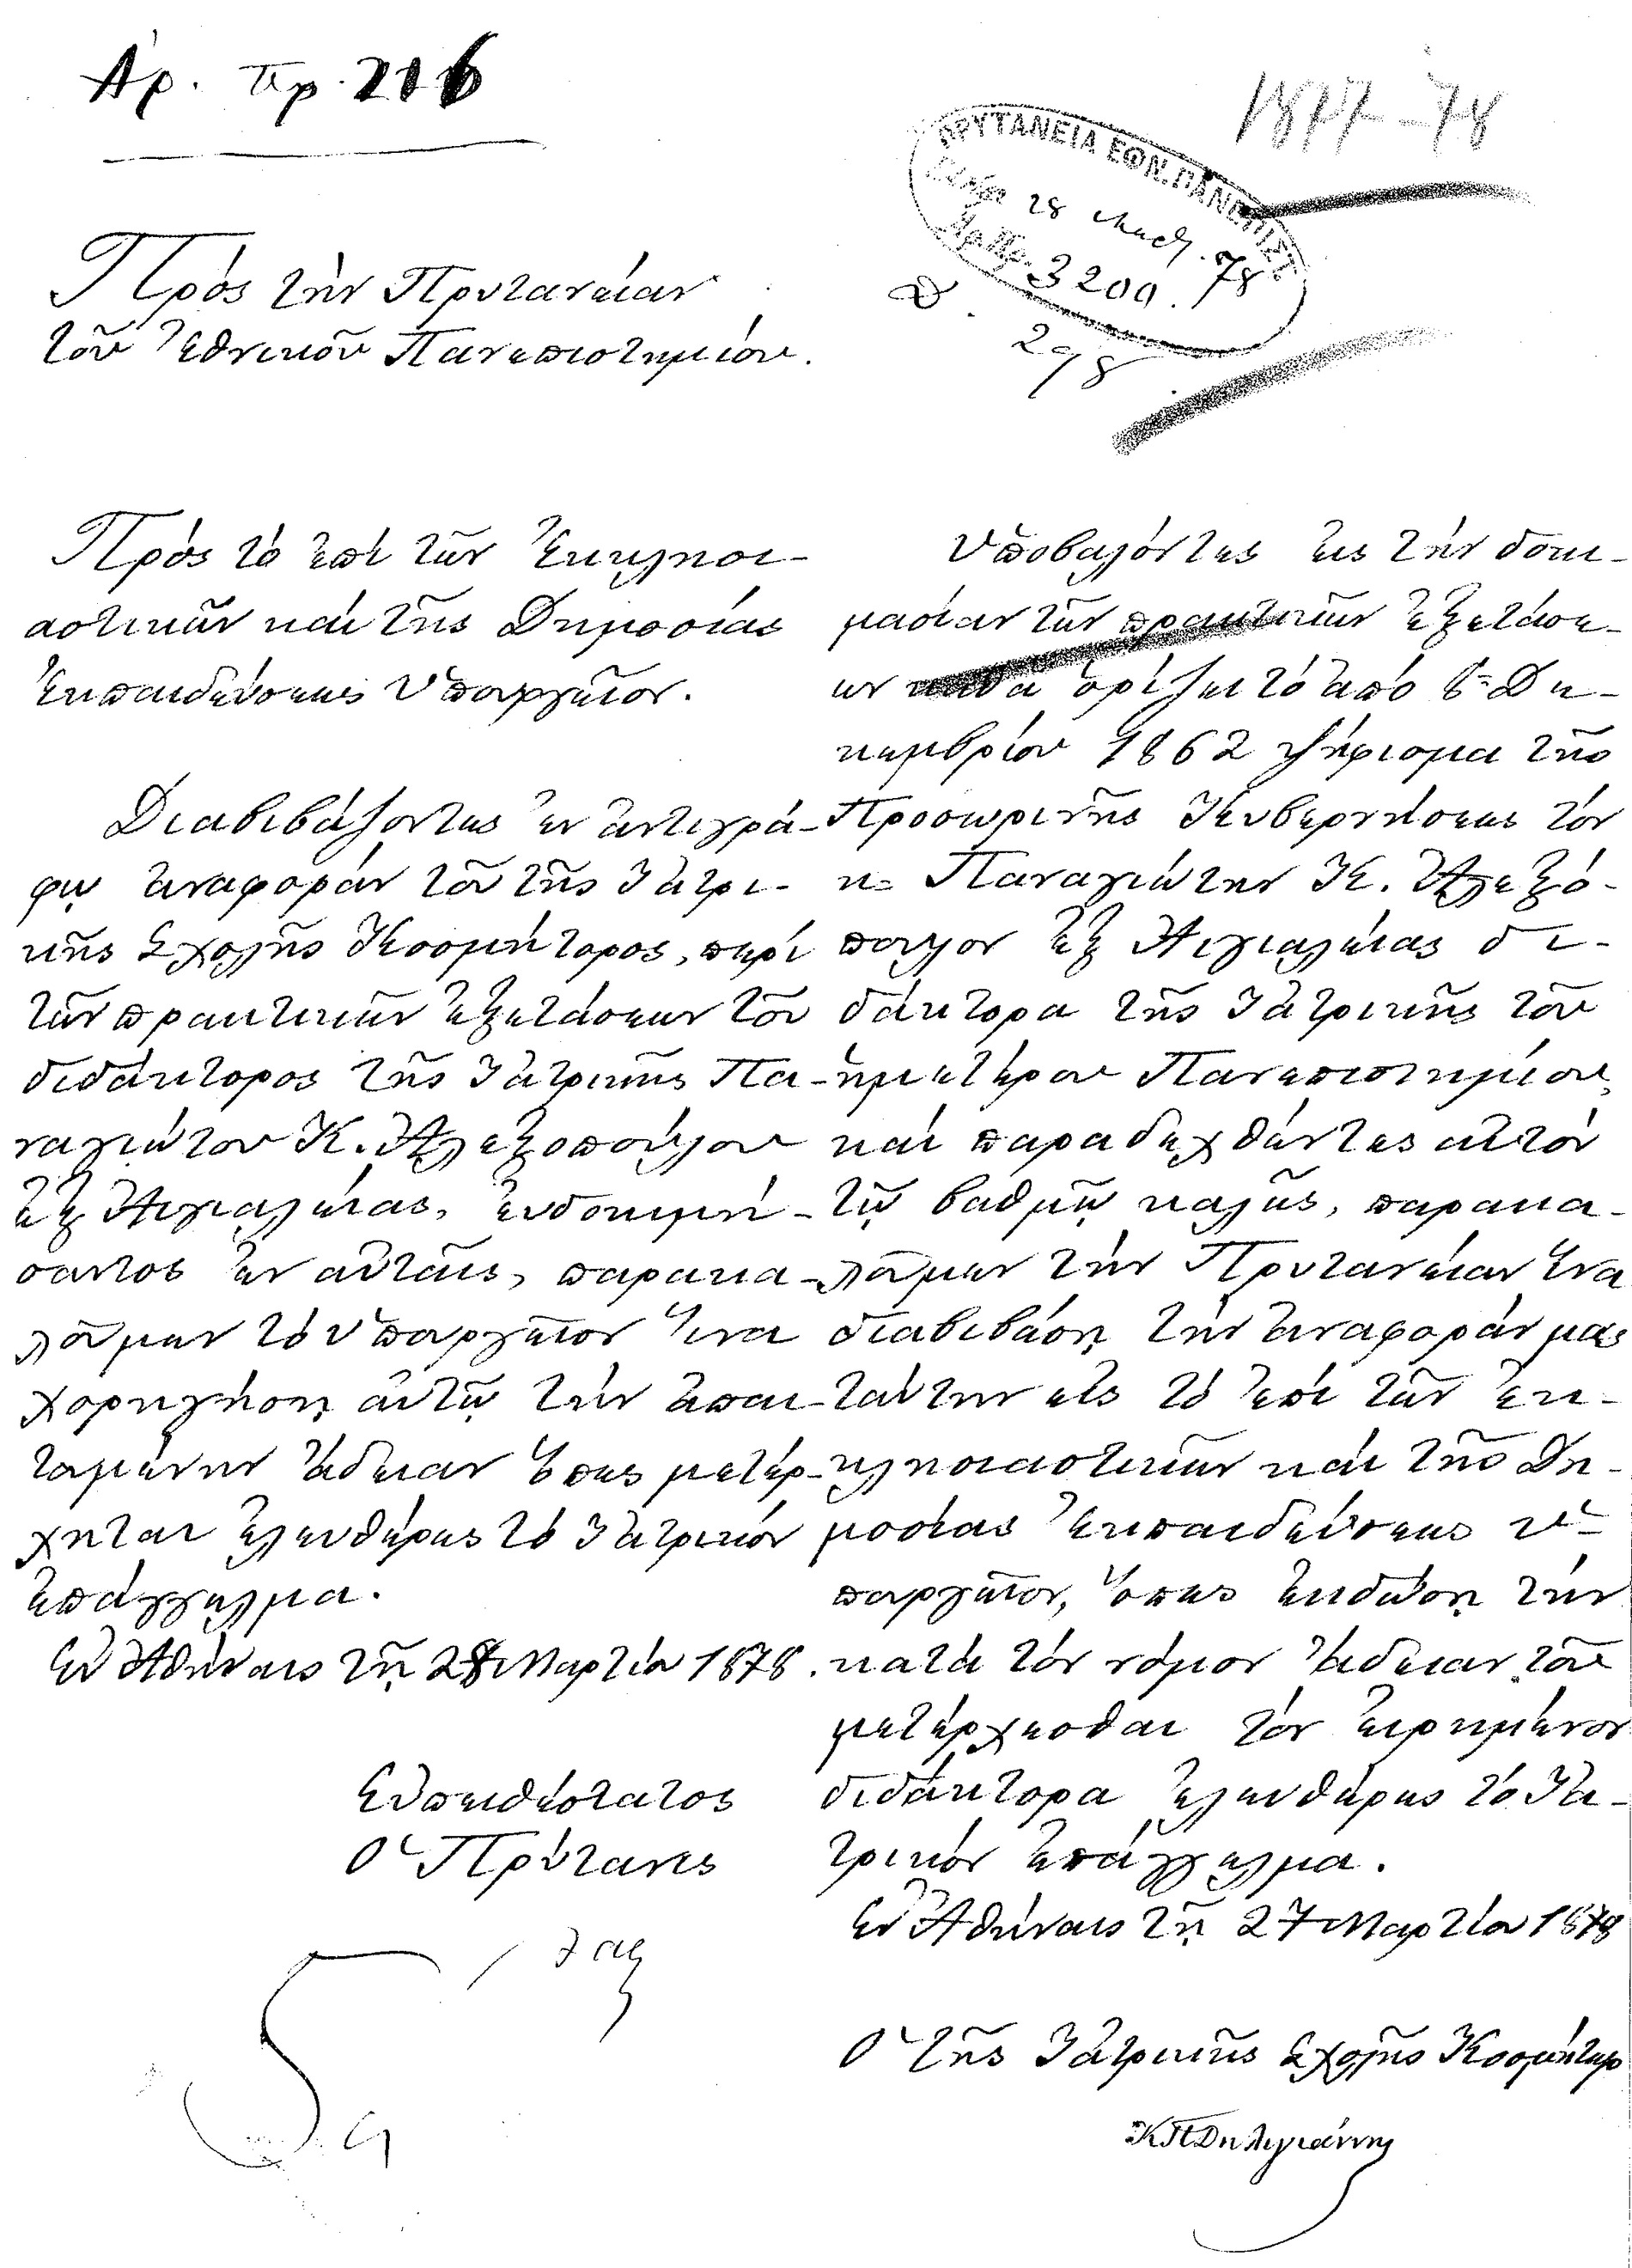 Ἀρ. πρ. 216
1877-78
ΠΡΥΤΑΝΕΙΑ ΕΘΝ. ΠΑΝΕΠΙΣΤ
28 Μαρτ. 78
Ἀρ. Πρ. 3200.
Φ. 298
Πρὸς τὴν Πρυτανείαν
τοῦ Ἐθνικοῦ Πανεπιστημίου.
Πρὸς τὸ ἐπὶ τῶν Ἐκκλησι-
αστικῶν καὶ τῆς Δημοσίας
Ἐκπαιδεύσεως Ὑπουργεῖον.
Διαβιβάζοντες ἐν ἀντιγρά-
φῳ ἀναφορὰν τοῦ τῆς Ἰατρι-
κῆς Σχολῆς Κοσμήτορος, περὶ
τῶν πρακτικῶν ἐξετάσεων τοῦ
διδάκτορος τῆς Ἰατρικῆς Πα-
ναγιώτου Κ. Ἀλεξοπούλου
ἐξ Αἰγιαλείας, εὐδοκιμή-
σαντος ἐν αὐταῖς, παρακα-
λοῦμεν τὸ Ὑπουργεῖον ἵνα
χορηγήσῃ αὐτῷ τὴν ἀπαι-
τουμένην ἄδειαν ὅπως μετέρ-
χηται ἐλευθέρως τὸ Ἰατρικὸν
ἐπάγγελμα.
Ἐν Ἀθήναις τῇ 28 Μαρτίου 1878.
Εὐπειθέστατος
Ὁ Πρύτανις
Ὑποβαλόντες εἰς τὴν δοκι-
μασίαν τῶν πρακτικῶν ἐξετάσε-
ων καθὰ ὁρίζει τὸ ἀπὸ 6 Δε-
κεμβρίου 1862 ψήφισμα τῆς
Προσωρινῆς Κυβερνήσεως τὸν
κ. Παναγιώτην Κ. Ἀλεξό-
πουλον ἐξ Αἰγιαλείας δι-
δάκτορα τῆς Ἰατρικῆς τοῦ
ἡμετέρου Πανεπιστημίου,
καὶ παραδεχθέντες αὐτὸν
τῷ βαθμῷ καλῶς, παρακα-
λοῦμεν τὴν Πρυτανείαν ἵνα
διαβιβάσῃ τὴν ἀναφοράν μας
ταύτην εἰς τὸ ἐπὶ τῶν ἐκ-
κλησιαστικῶν καὶ τῆς Δη-
μοσίας Ἐκπαιδεύσεως ὑ-
πουργεῖον, ὅπως ἐκδώσῃ τὴν
κατὰ τὸν νόμον ἄδειαν τοῦ
μετέρχεσθαι τὸν εἰρημένον
διδάκτορα ἐλευθέρως τὸ Ἰα-
τρικὸν ἐπάγγελμα.
Ἐν Ἀθήναις τῇ 27 Μαρτίου 1878
Ὁ τῆς Ἰατρικῆς Σχολῆς Κοσμήτωρ
ΚΠ Δηλιγιάννης